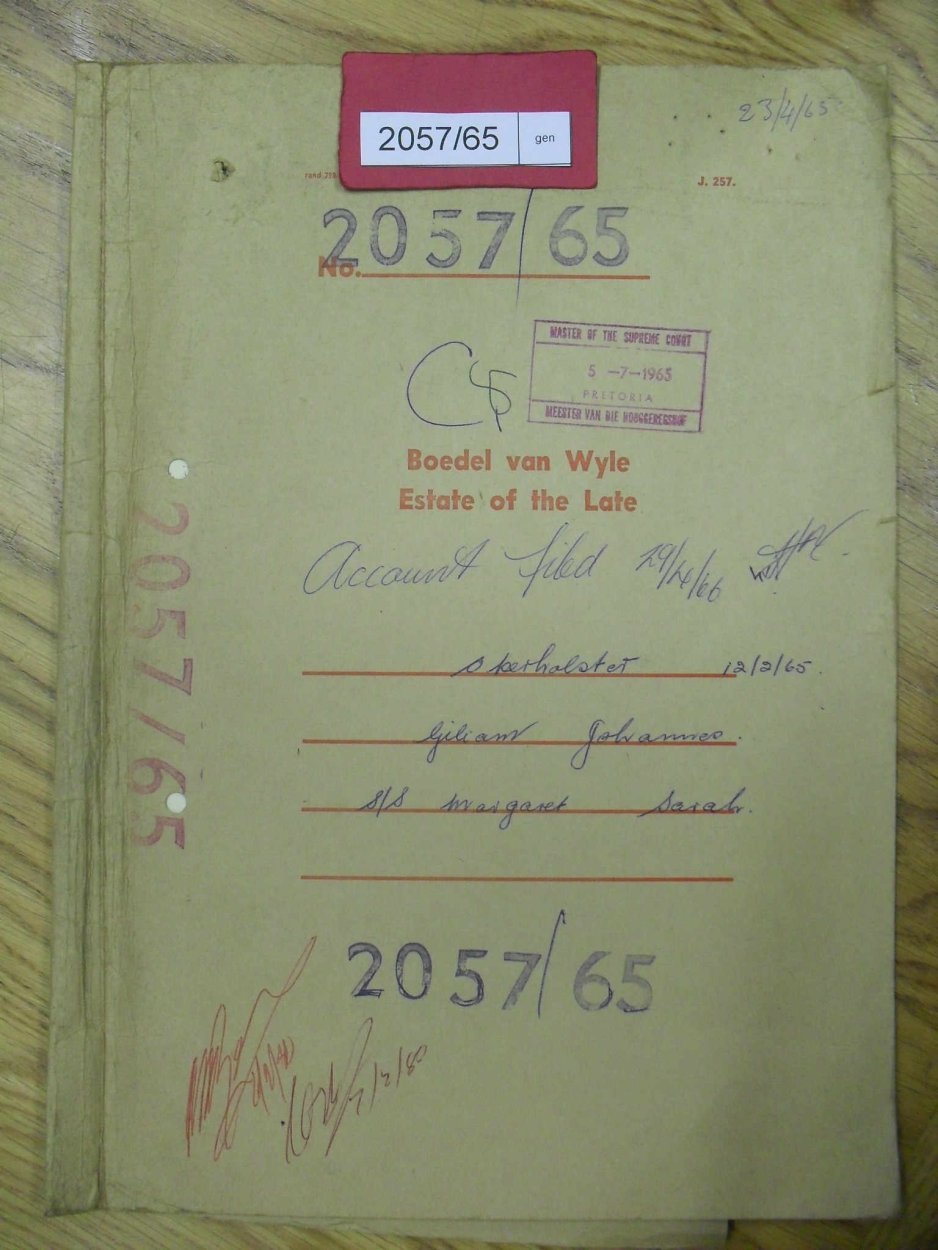 23/4/65
2057/65 gen
J. 257.
No. 2057/65
MASTER OF THE SUPREME COURT
5 -7-1965
PRETORIA
MEESTER VAN DIE HOOGGEREGSHOF
Boedel van Wyle
Estate of the Late
Account filed 29/4/66
Okerholster 12/2/65.
Giliam Johannes.
S/S Margaret Sarah.
2057/65
2057/65